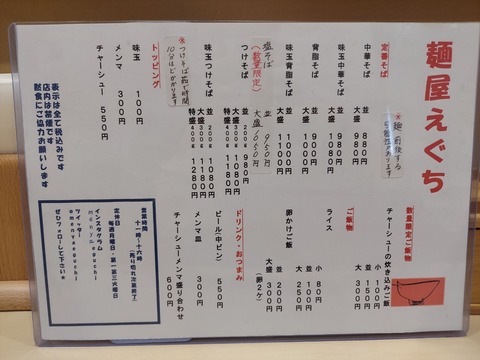 麺屋えぐち
定番そば
中華そば 並 880円
大盛 980円
味玉中華そば 並 980円
大盛 1080円
背脂そば 並 900円
大盛 1000円
味玉背脂そば 並 1000円
大盛 1100円
塩そば 並 950円
（数量限定） 大盛 1050円
つけそば 並200g 980円
大盛300g 1080円
特盛400g 1180円
味玉つけそば 並200g 1080円
大盛300g 1180円
特盛400g 1280円
※つけそば茹で時間
10分ほどかかります
トッピング
味玉 100円
メンマ 300円
チャーシュー 550円
表示は全て税込みです
店内は禁煙です
黙食にご協力お願いします
数量限定ご飯物
チャーシューの炊き込みご飯
小 100円
並 150円
大 300円
ご飯物
ライス 小 80円
並 100円
大 250円
卵かけご飯 並 200円
大盛 300円
（卵2ケ）
ドリンク・おつまみ
ビール（中ビン） 550円
メンマ皿 300円
チャーシューメンマ盛り合わせ 600円
営業時間
十一時～十六時
（売り切れ次第終了）
定休日
毎週月曜日・第一第三火曜日
インスタグラム
menya.eguchi
ツイッター
@menyaeguchi
ぜひフォローして下さい★